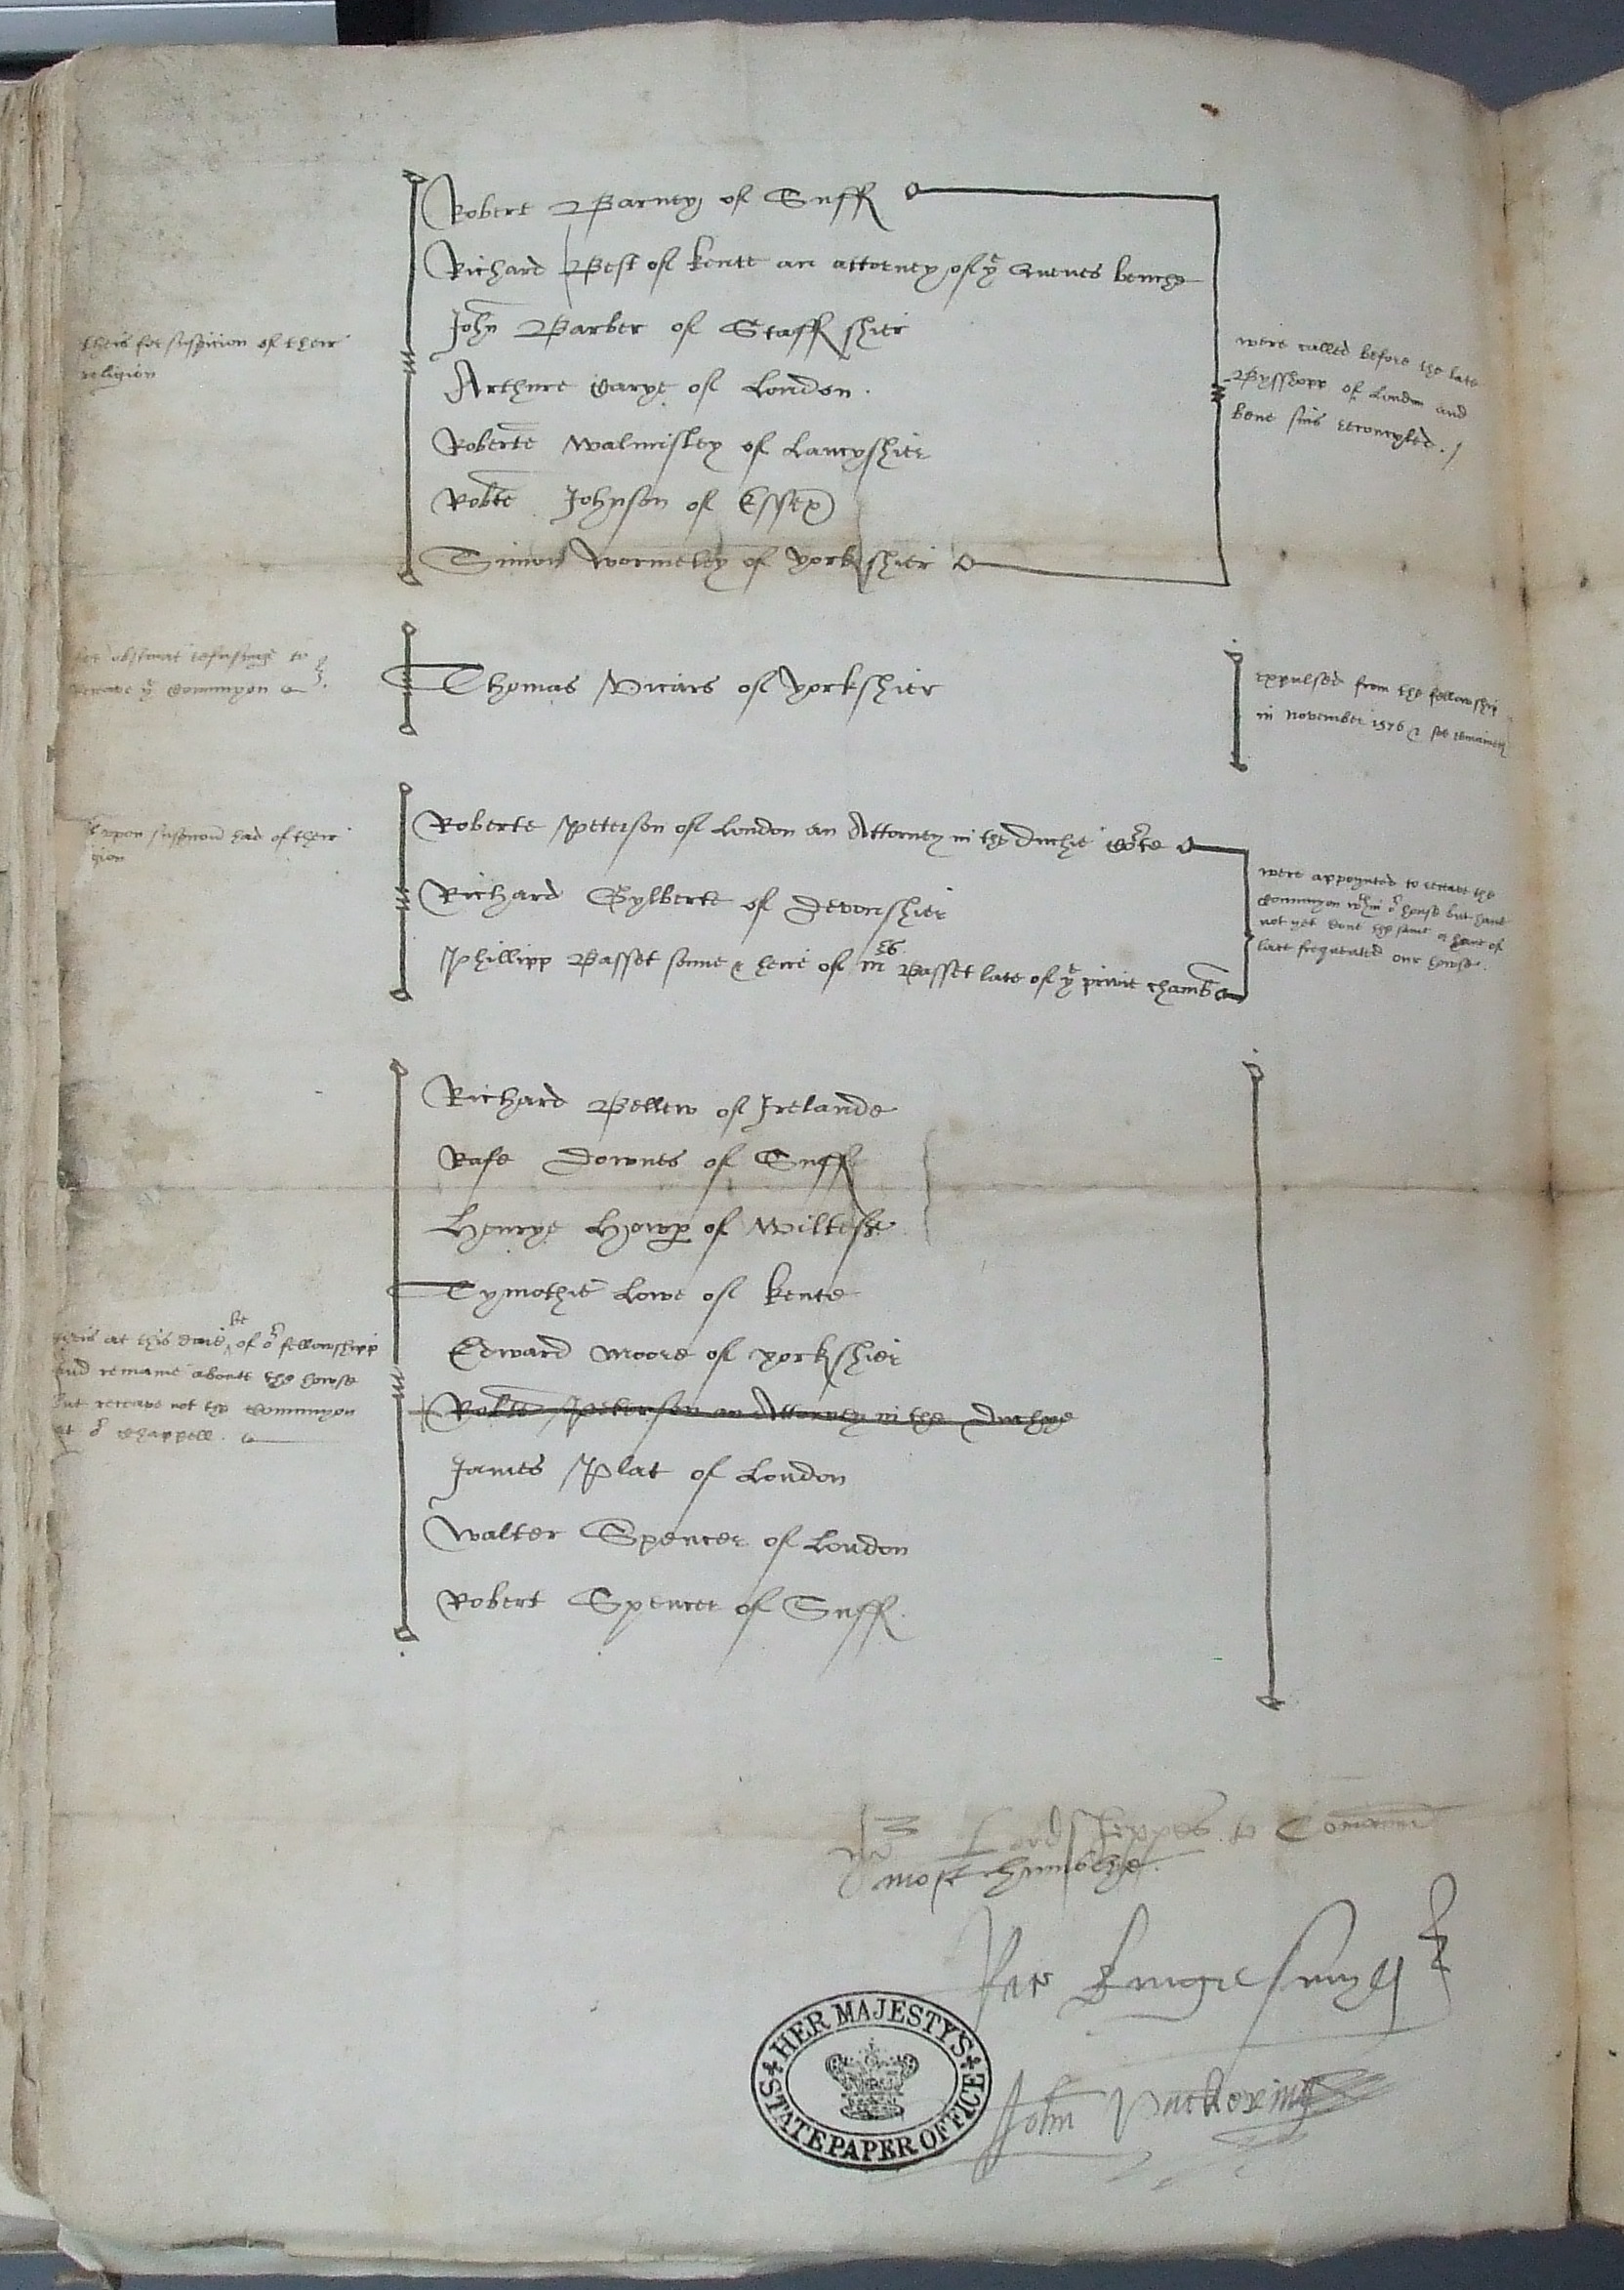 Robert Barney of Suff
Richard Best of Kente an attorney of ye Quenes benche
John Barber of Staff shier
theis for suspicion of their
religion
Arthure Carye of London.
Roberte Walmisley of Lancyshier
Robte Johnson of Essex
Simon Wormeley of Yorkshier
were called before the late
Bysshopp of London and
bene sins reconcyled./
for obstinat refusinge to
receave ye Comunyon
Thomas Vicars of Yorkshier
expulsed from the fellowship
in november 1576 & soe remaineth
upon suspicion had of their
gion
Roberte Peterson of London an Attorney in the Duchie Corte
Richard Gylberte of Devonshier
Phillipp Basset sonne & heire of mres Basset late of ye privie chamb
were appoynted to receave the
Comunyon wthin or house but have
not yet done the same & have of
late frequented our howse.
Richard Bellew of Irelande
Rafe Downes of Suff
Henrye Hower of Wiltesh
Tymothie Lowe of Kente
Edward Moore of Yorkshier
Robte Peterson an Attorney in the Duchye
James Plat of London
Walter Spencer of London
Robert Spencer of Suff.
theis at this daie be of or fellowshipp
and remaine aboute the howse
but receave not the Comunyon
at or Chappell.
Yor Lordshippes to Comaund
most humblye.
John Puckering
HER MAJESTY'S
STATE PAPER OFFICE